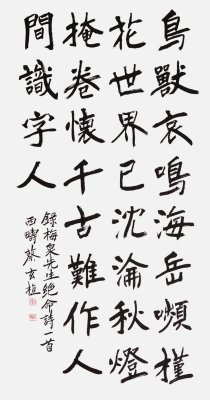 鳥獸哀鳴海岳嚬槿
花世界已沈淪秋燈
掩卷懷千古難作人
間識字人
錄梅泉先生絶命詩一首
蔡玄植